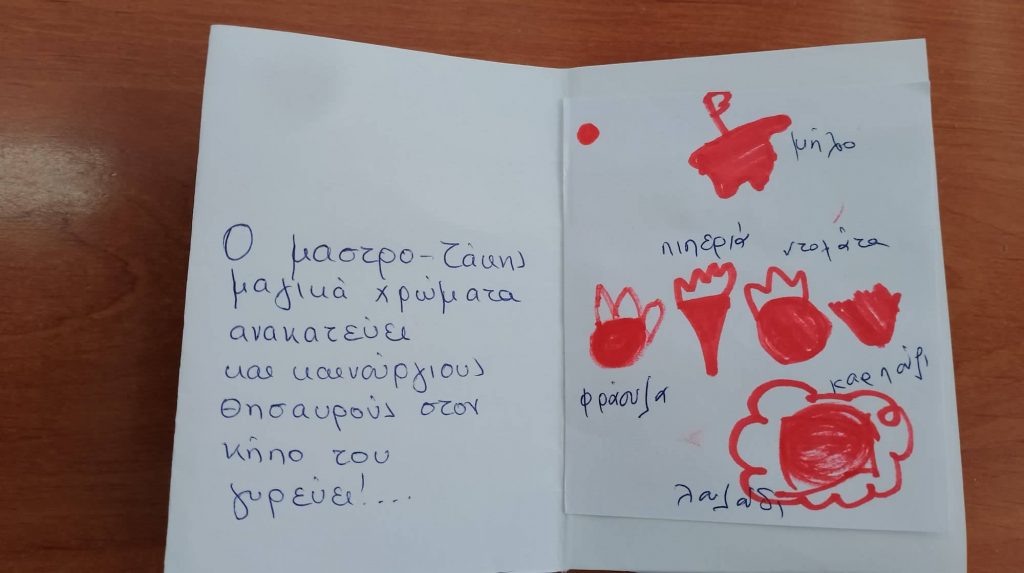 Ο μαστρο-Τάκης
μαγικά χρώματα
ανακατεύει
και καινούργιους
θησαυρούς στον
κήπο του
γυρεύει!...
μήλο
πιπεριά ντομάτα
φράουλα
καρπούζι
λουλούδι